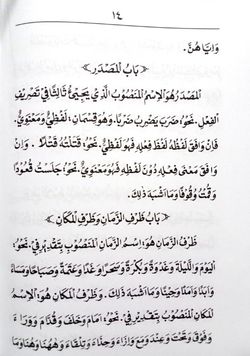 ١٤
وَإِيَّاهُنَّ.
﴿بَابُ الْمَصْدَرِ﴾
الْمَصْدَرُ هُوَ الْاِسْمُ الْمَنْصُوبُ الَّذِي يَجِيءُ ثَالِثًا فِي تَصْرِيفِ
الْفِعْلِ. نَحْوُ ضَرَبَ يَضْرِبُ ضَرْبًا. وَهُوَ قِسْمَانِ، لَفْظِيٌّ وَمَعْنَوِيٌّ.
فَإِنْ وَافَقَ لَفْظُهُ لَفْظَ فِعْلِهِ فَهُوَ لَفْظِيٌّ. نَحْوُ قَتَلْتُهُ قَتْلًا. وَإِنْ
وَافَقَ مَعْنَى فِعْلِهِ دُونَ لَفْظِهِ فَهُوَ مَعْنَوِيٌّ. نَحْوُ جَلَسْتُ قُعُودًا
وَقُمْتُ وُقُوفًا وَمَا أَشْبَهَ ذَلِكَ.
﴿بَابُ ظَرْفِ الزَّمَانِ وَظَرْفِ الْمَكَانِ﴾
ظَرْفُ الزَّمَانِ هُوَ اسْمُ الزَّمَانِ الْمَنْصُوبُ بِتَقْدِيرِ فِي. نَحْوُ
الْيَوْمَ وَاللَّيْلَةَ وَغُدْوَةً وَبُكْرَةً وَسَحَرًا وَغَدًا وَعَتَمَةً وَصَبَاحًا وَمَسَاءً
وَأَبَدًا وَأَمَدًا وَحِينًا وَمَا أَشْبَهَ ذَلِكَ. وَظَرْفُ الْمَكَانِ هُوَ الْاِسْمُ
الْمَكَانِ الْمَنْصُوبُ بِتَقْدِيرِ فِي. نَحْوُ أَمَامَ وَخَلْفَ وَقُدَّامَ وَوَرَاءَ
وَفَوْقَ وَتَحْتَ وَعِنْدَ وَمَعَ وَإِزَاءَ وَحِذَاءَ وَتِلْقَاءَ وَهُنَا وَ